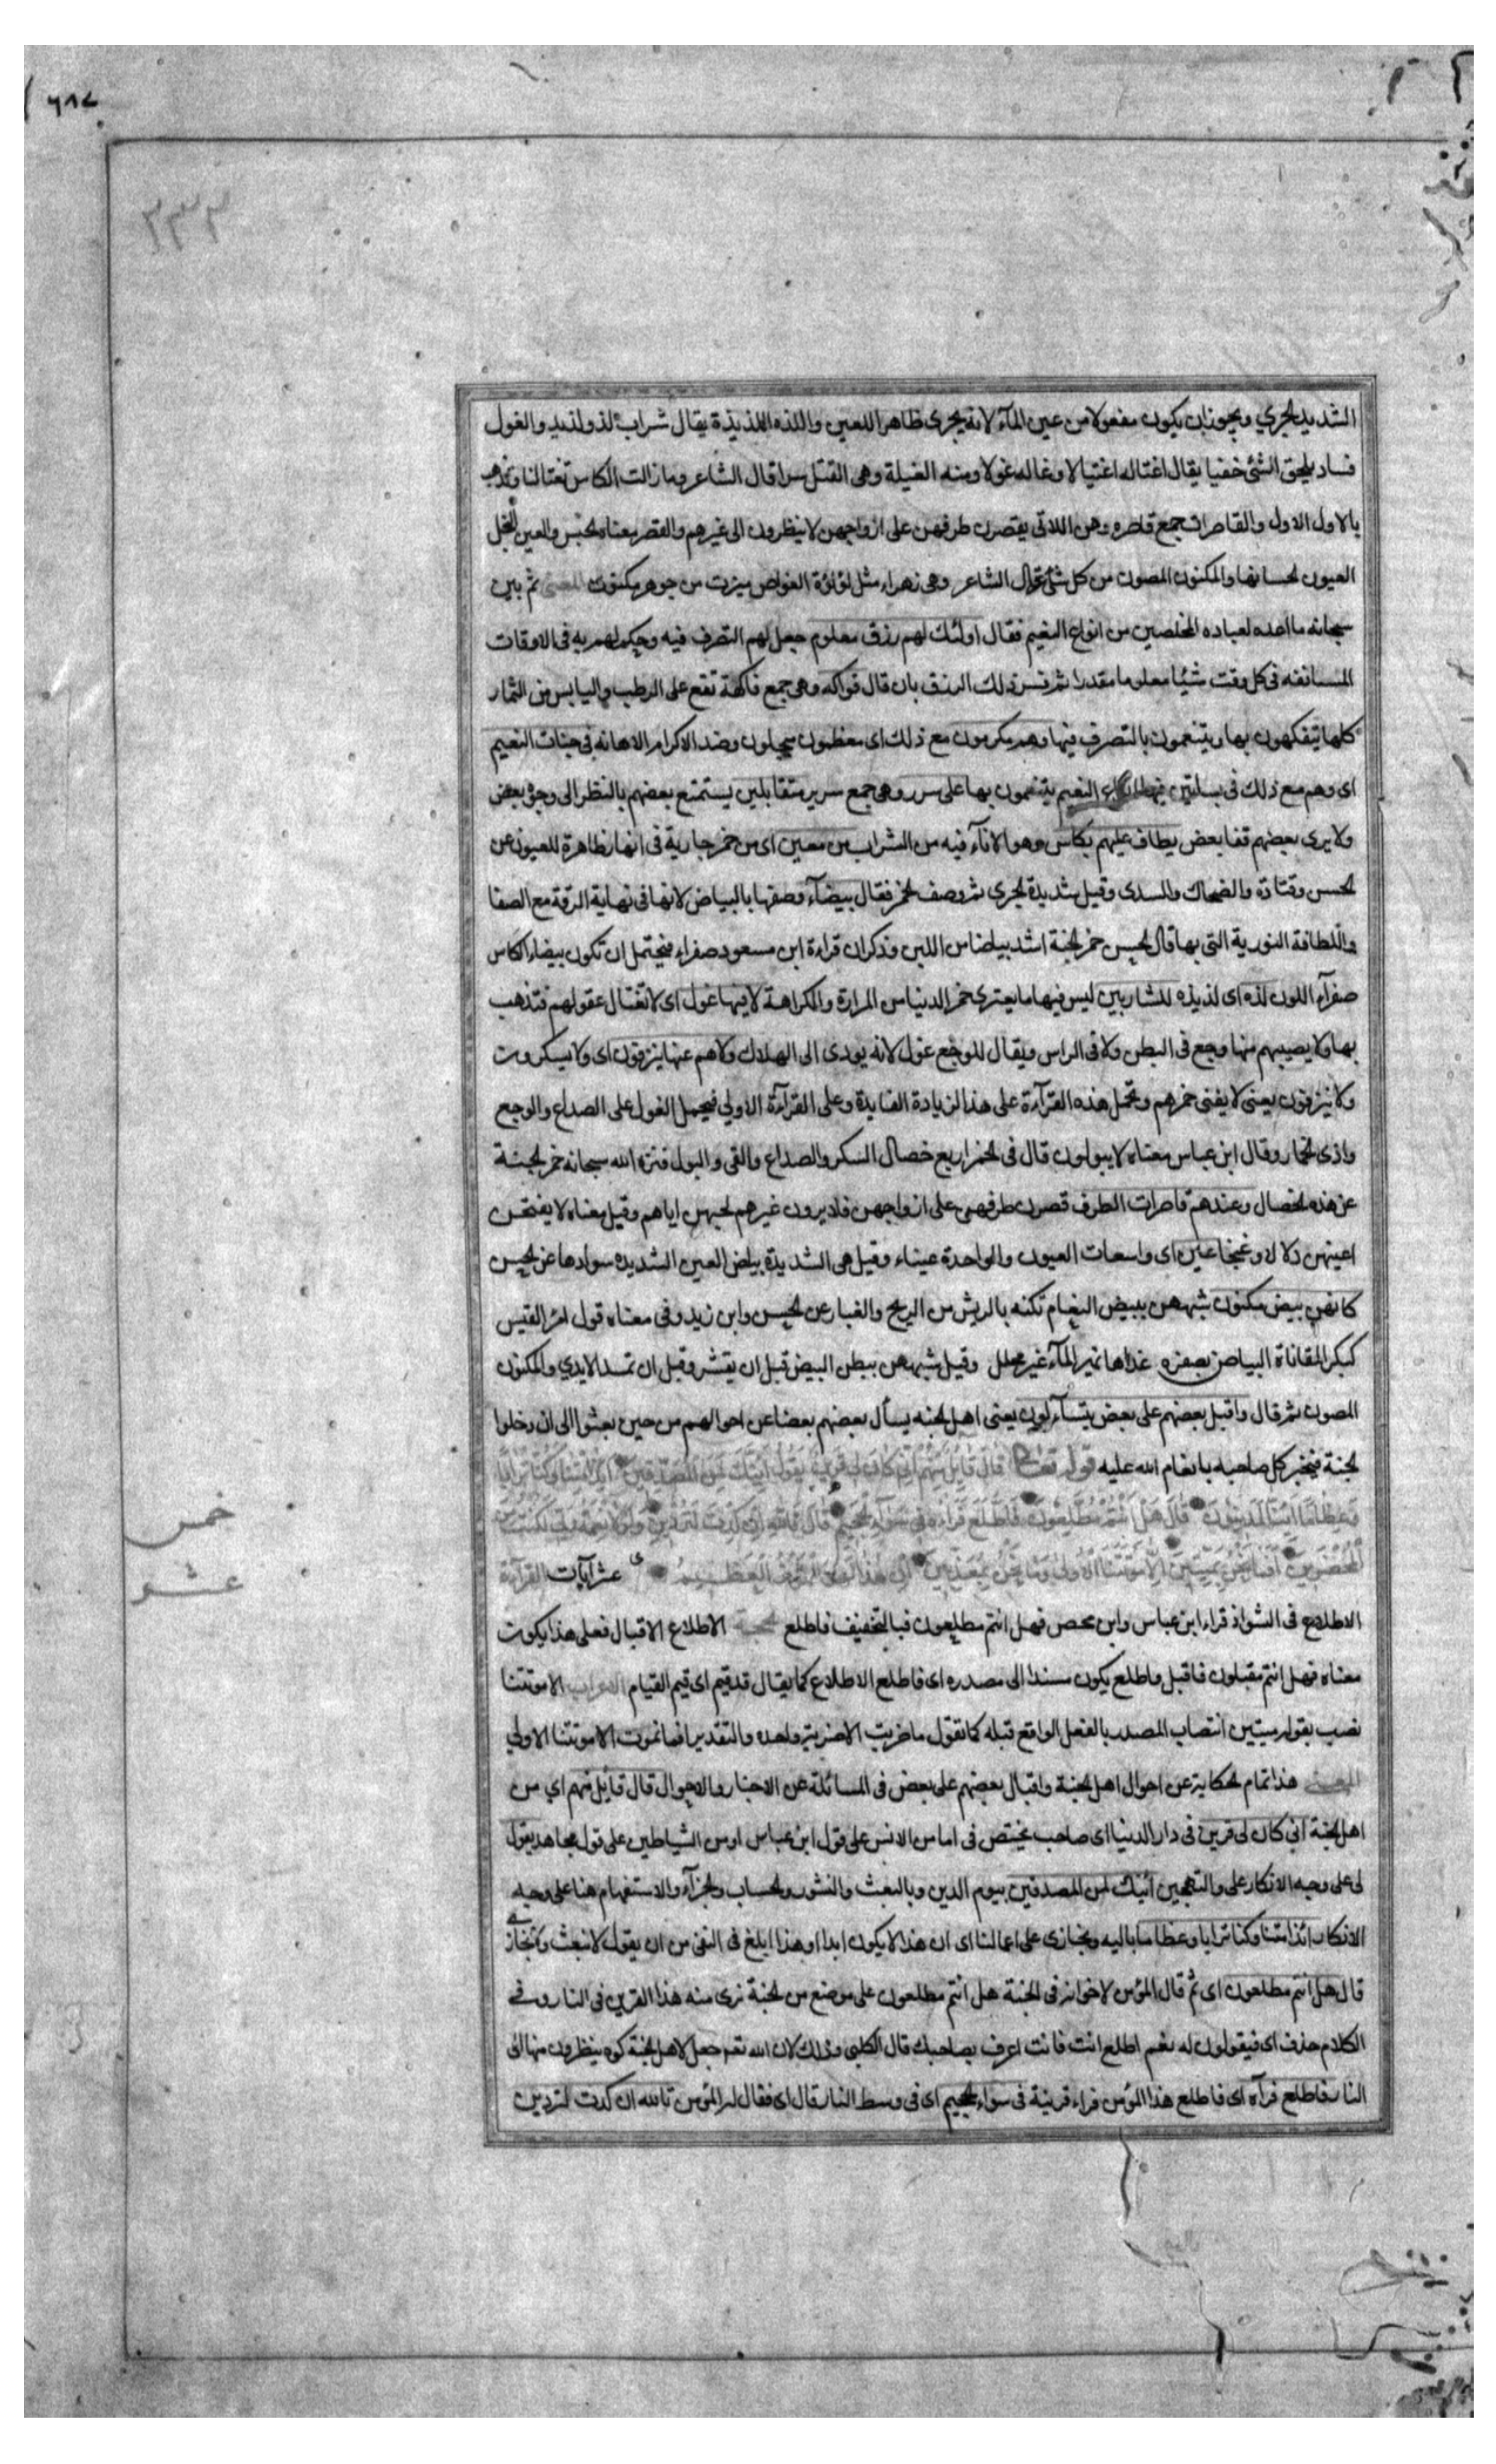 ٦٨٧
٣٣٣
الشديد الجري ويجوز ان يكون مفعولا من عين المآء لانه يجرى ظاهرا للعين واللذه اللذيذة يقال شراب لذ ولذيذ والغول
فساد يلحق الشئ خفيا يقال اغتاله اغتيالا وغاله غولا ومنه الغيلة وهى القتل سرا قال الشاعر وما زالت الكاس تغتالنا وتذهب
بالاول الاول والقاصرات جمع قاصره وهن اللاتى يقصرن طرفهن على ازواجهن لا ينظرون الى غيرهم والقصر معناه الحبس والعين النجل
العيون لحسانها والمكنون المصون من كل شئ قال الشاعر وهى زهراء مثل لؤلؤة الغواص ميزت من جوهر مكنون المعنى ثم بين
سبحانه ما اعده لعباده المخلصين من انواع النعيم فقال اولئك لهم رزق معلوم جعل لهم التصرف فيه وحكم لهم به فى الاوقات
المسانفه فى كل وقت شيئا معلوما مقدرا ثم فسر ذلك الرزق بان قال فواكه وهى جمع فاكهة تقع على الرطب واليابس من الثمار
كلها يتفكهون بها ويتنعمون بالتصرف فيها وهم مكرمون مع ذلك اى معظمون مبجلون وضد الاكرام الاهانه فى جنات النعيم
اى وهم مع ذلك فى بساتين فيها انواع النعيم يتنعمون بها على سرر وهى جمع سرير متقابلين يستمتع بعضهم بالنظر الى وجوه بعض
ولا يرى بعضهم قفا بعض يطاف عليهم بكاس وهو الانآء فيه من الشراب من معين اى من خمر جارية فى انهار ظاهرة للعيون عن
الحسن وقتادة والضحاك والسدى وقيل شديدة الجرى ثم وصف الخمر فقال بيضآء وصفها بالبياض لانها فى نهاية الرقة مع الصفا
واللطافة النورية التى بها قال الحسن خمر الجنة اشد بياضا من اللبن وذكر ان قراءة ابن مسعود صفراء فيحتمل ان تكون بيضاء الكاس
صفرآء اللون لذه اى لذيذه للشاربين ليس فيها ما يعترى خمر الدنيا من المرارة والكراهة لا فيها غول اى لا تغتال عقولهم فتذهب
بها ولا يصيبهم منها وجع فى البطن ولا فى الراس ويقال للوجع غول لانه يودى الى الهلاك ولا هم عنها ينزفون اى ولا يسكرون
ولا ينزفون يعنى لا يفنى خمرهم وتحمل هذه القرآءة على هذا لزيادة الفايدة وعلى القرآءة الاولى فيحمل الغول على الصداع والوجع
واذى الخمار وقال ابن عباس معناه لا يبولون قال فى الخمر اربع خصال السكر والصداع والقى والبول فنزه الله سبحانه خمر الجنة
عن هذه الخصال وعندهم قاصرات الطرف قصرن طرفهن على ازواجهن فلا يرون غيرهم لحبهن اياهم وقيل معناه لا يفتحن
اعينهن دلالا وغنجا عين اى واسعات العيون والواحدة عيناء وقيل هى الشديدة بياض العين الشديده سوادها عن الحسن
كانهن بيض مكنون شبههن ببيض النعام تكنه بالريش من الريح والغبار عن الحسن وابن زيد وفى معناه قول امرء القيس
كبكر المقاناة البياض بصفره غذاها نمير المآء غير محلل وقيل شبههن ببطن البيض قبل ان يقشر وقبل ان تمسه الايدي والمكنون
المصون ثم قال واقبل بعضهم على بعض يتسآءلون يعنى اهل الجنه يسأل بعضهم بعضا عن احوالهم من حين بعثوا الى ان دخلوا
الجنة فيخبر كل صاحبه بانعام الله عليه قوله تعالى قَالَ قَائِلٌ مِنْهُمْ اِنّي كَانَ لِي قَرِينٌ يَقُولُ اَئِنَّكَ لَمِنَ الْمُصَدِّقِينَ اَئِذَا مِتْنَا وَكُنَّا تُرَابًا
وَعِظَامًا اَئِنَّا لَمَدِينُونَ قَالَ هَلْ اَنْتُمْ مُطَّلِعُونَ فَاطَّلَعَ فَرَاٰهُ فِي سَوَآءِ الْجَحِيمِ قَالَ تَاللهِ اِنْ كِدْتَ لَتُرْدِينِ وَلَوْلَا نِعْمَةُ رَبِّي لَكُنْتُ مِنَ
الْمُحْضَرِينَ اَفَمَا نَحْنُ بِمَيِّتِينَ اِلَّا مَوْتَتَنَا الْاُولٰى وَمَا نَحْنُ بِمُعَذَّبِينَ اِنَّ هٰذَا لَهُوَ الْفَوْزُ الْعَظِيمُ عشر آيات القرآءة
الاطلاع فى الشواذ قراء ابن عباس وابن محصن فهل انتم مطلعون فبالتخفيف فاطلع الحجة الاطلاع الاقبال فعلى هذا يكون
معناه فهل انتم مقبلون فاقبل واطلع يكون مسندا الى مصدره اى فاطلع الاطلاع كما يقال قد قيم اى قيم القيام الاعراب الا موتتنا
نصب بقوله بميتين انتصاب المصدر بالفعل الواقع قبله كما تقول ما ضربت الا ضربة واحده والتقدير افما نموت الا موتتنا الاولى
المعنى هذا تمام الحكاية عن احوال اهل الجنة واقبال بعضهم على بعض فى المسائلة عن الاخبار والاحوال قال قآئل منهم اى من
اهل الجنة انى كان لى قرين فى دار الدنيا اى صاحب يختص فى اما من الانس على قول ابن عباس او من الشياطين على قول مجاهد يقول
لى على وجه الانكار على والتهجين ائنك لمن المصدقين بيوم الدين وبالبعث والنشور والحساب والجزآء والاستفهام هنا على وجه
الانكار ائذا متنا وكنا ترابا وعظاما باليه ومجازى على اعمالنا اى ان هذا لا يكون ابدا وهذا ابلغ فى النفى من ان يقول لا نبعث ولا نجازى
قال هل انتم مطلعون اى ثم قال المؤمن لاخوانه فى الجنة هل انتم مطلعون على موضع من الجنة نرى منه هذا القرين فى النار وفى
الكلام حذف اى فيقولون له نعم اطلع انت فانت اعرف بصاحبك قال الكلبى وذلك لان الله تعالى جعل لاهل الجنة كوه ينظرون منها الى
النار فاطلع فرآه اى فاطلع هذا المؤمن فراء قرينة فى سواء الجحيم اى فى وسط النار قال اى فقال له المؤمن تالله ان كدت لتردين
خمس
عشر